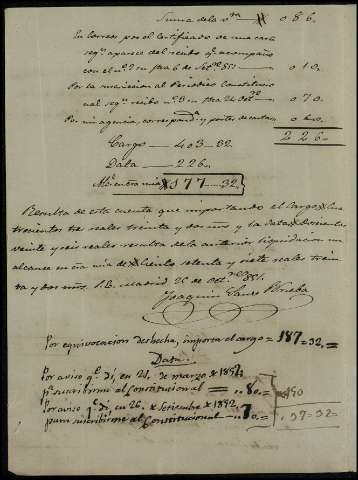 Suma de la vta — 086.
En Correos por el Certificado de una carta
segn aparece del recibo qe acompaño
con el nº 2 en fha 6 de Setbre 851 — 010.
Por la suscricion al Periodico Constitucio
nal segn recibo nº 3 en fha 24 Octbre — 070
Por mi agencia, correspond.a y portes de cartas 060.
226.
Cargo — 403 — 32.
Data — 226.
177 — 32.
Resulta de esta cuenta que importando el Cargo Cua
trocientos tres reales treinta y dos mrs y la Data Doscientos
veinte y seis reales resulta de la anterior liquidacion un
alcance en ntra mia de Ciento setenta y siete reales trein
ta y dos mrs. S.E. Madrid 26 de Octbre 851.
Joaquin
Por equivocacion deshecha, importa el cargo = 187 = 32. =
Data.
Por aviso qe di, en 21, de marzo 1851,
pa suscribirme al Constitucional = 80. =
Por aviso qe di, en 26. Setiembre 1852,
para suscribirme al Constitucional — 70. =
150
37 = 32 =